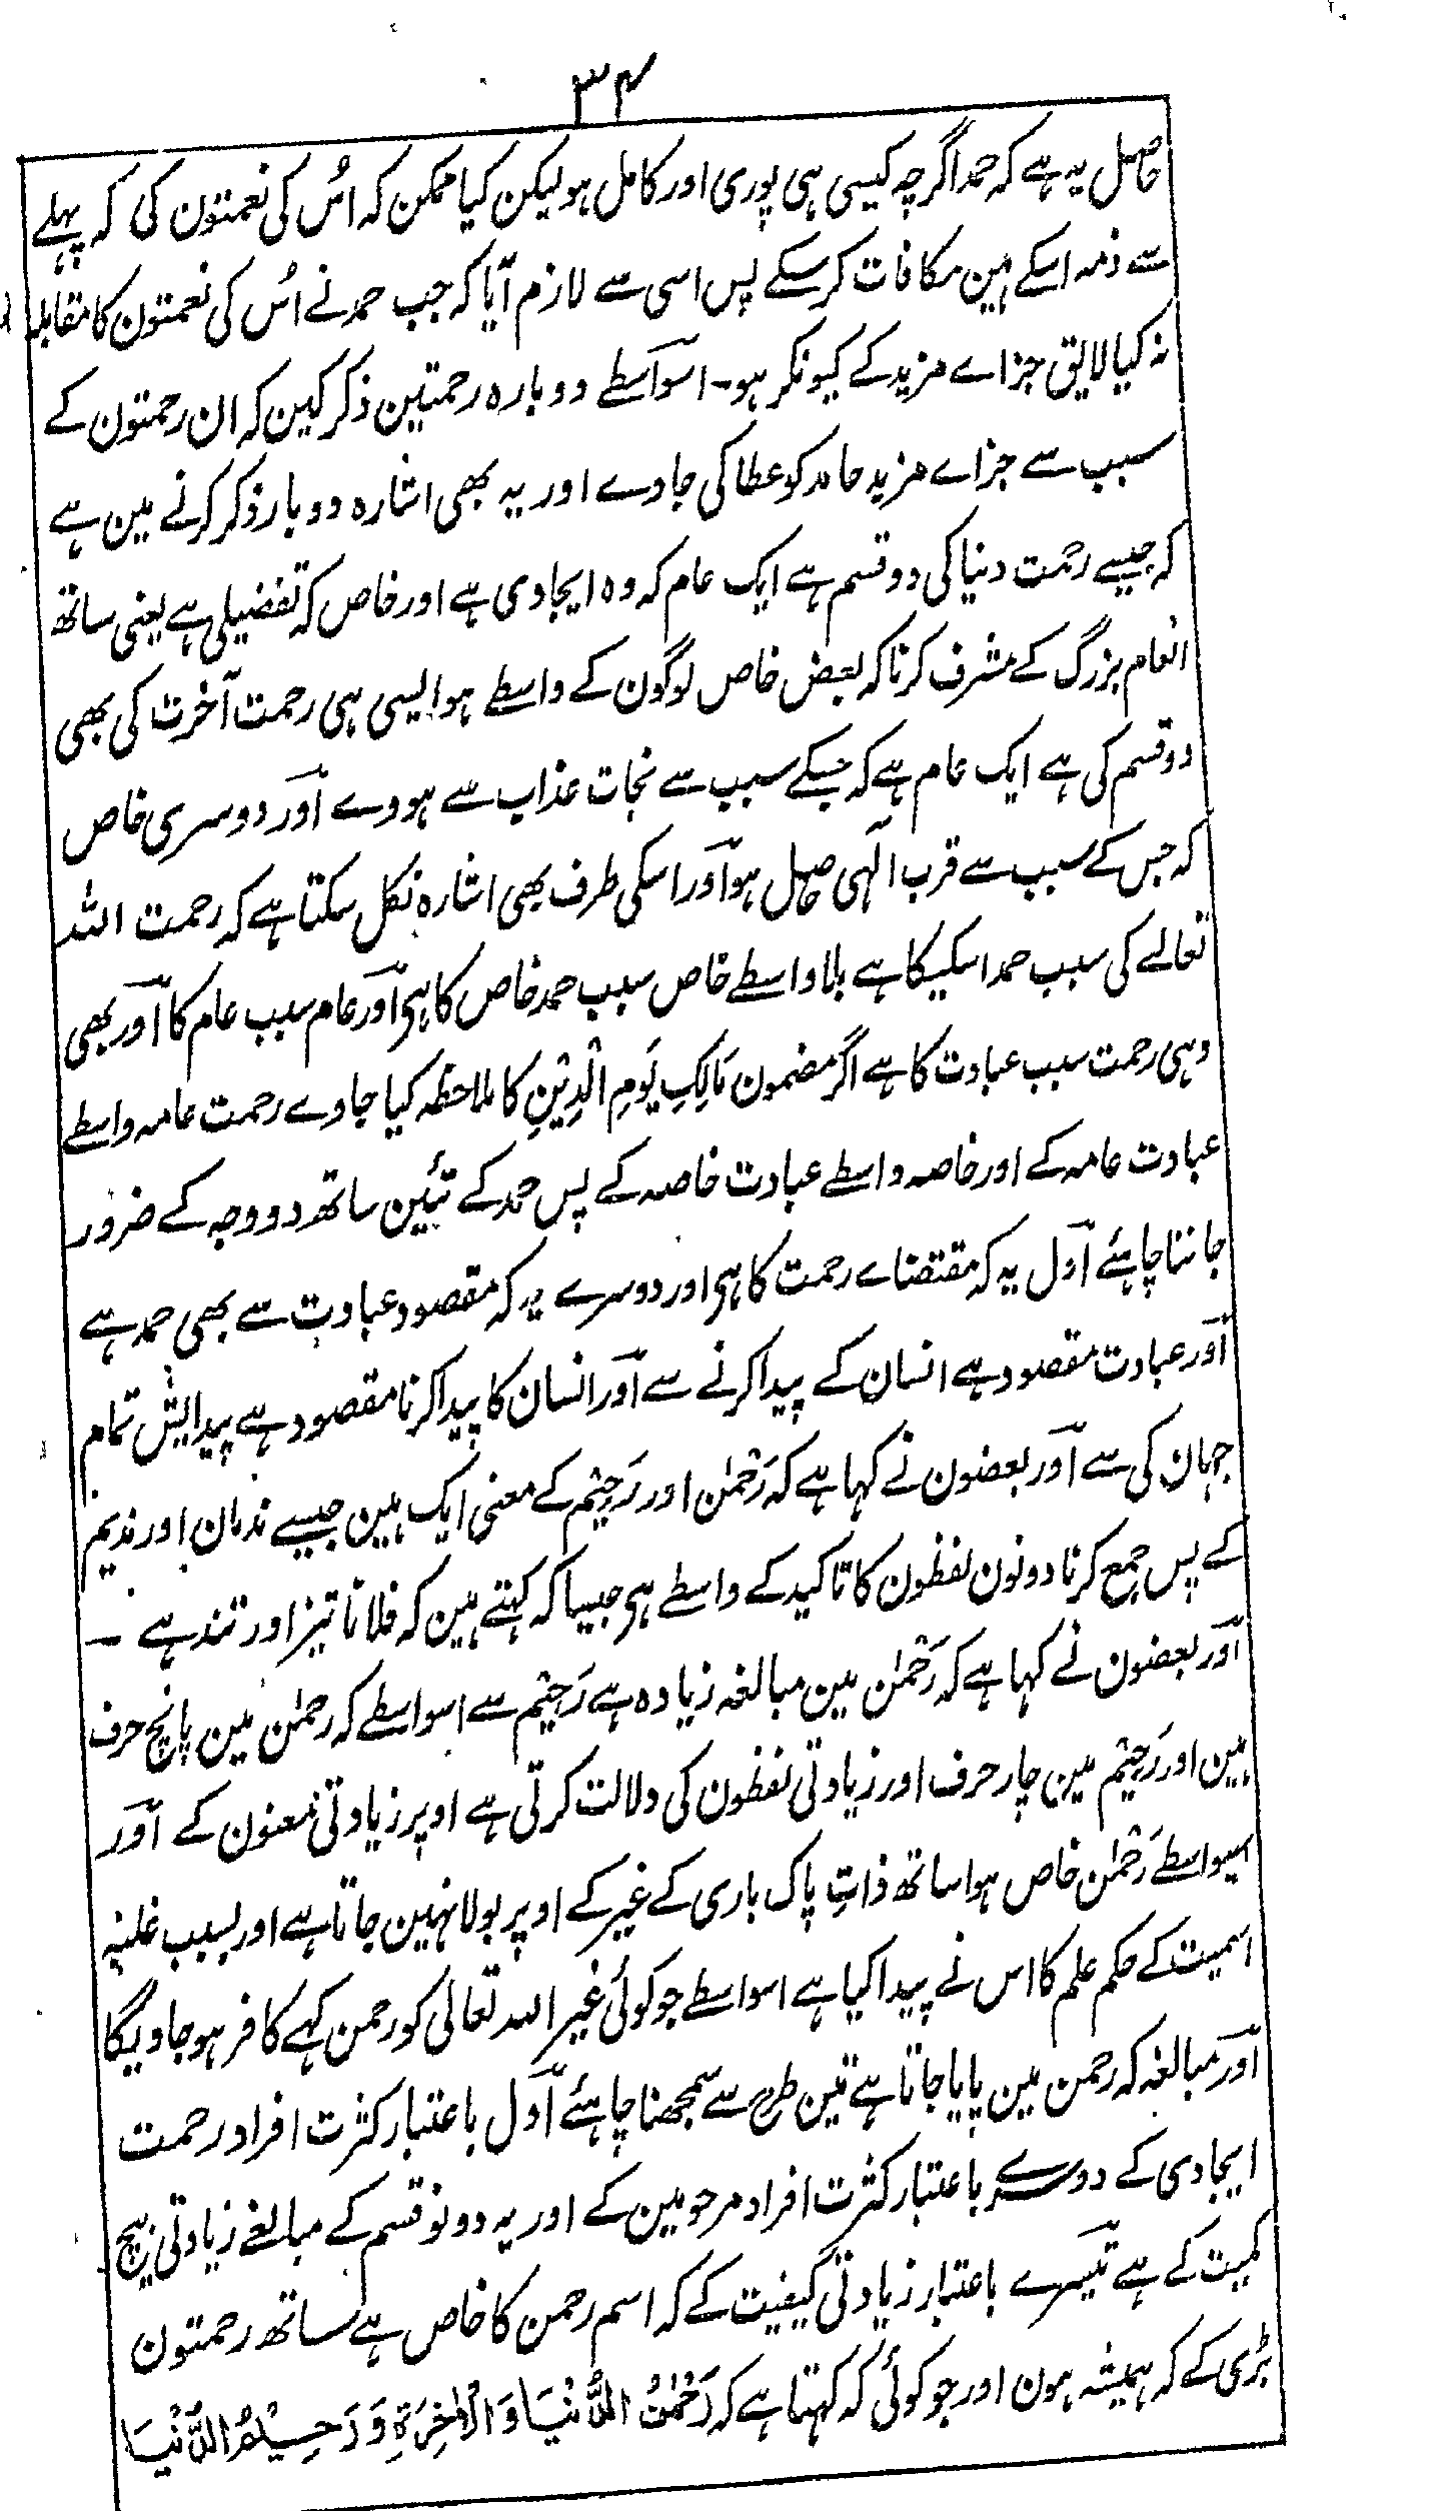 ۳۴
حاصل یہ ہے کہ حمد اگرچہ کیسی ہی پوری اور کامل ہو لیکن کیا ممکن کہ اُس کی نعمتون کی کہ پہلے
سے ذمہ اسکے ہین مکافات کر سکے پس اسی سے لازم آیا کہ جب حمد نے اُس کی نعمتون کا مقابلہ
نہ کیا لایق جزاے مزید کے کیونکر ہو۔ اسواسطے دوبارہ رحمتین ذکر کین کہ ان رحمتون کے
سبب سے جزاے مزید حامد کو عطا کی جاوے اور یہ بھی اشارہ دوبار ذکر کرنے مین ہے
کہ جیسے رحمت دنیا کی دو قسم ہے ایک عام کہ وہ ایجادی ہے اور خاص کہ تفضیلی ہے یعنی ساتھ
انعام بزرگ کے مشرف کرنا کہ بعض خاص لوگون کے واسطے ہو ایسی ہی رحمت آخرت کی بھی
دو قسم کی ہے ایک عام ہے کہ جسکے سبب سے نجات عذاب سے ہووے اور دوسری خاص
کہ جس کے سبب سے قرب الٰہی حاصل ہو اور اسکی طرف بھی اشارہ نکل سکتا ہے کہ رحمت اللہ
تعالے کی سبب حمد اسکیکا ہے بلا واسطے خاص سبب حمد خاص کا ہی اور عام سبب عام کا اور بھی
وہی رحمت سبب عبادت کا ہے اگر مضمون مَالِكِ يَوْمِ الدِّيْنِ کا ملاحظہ کیا جاوے رحمت عامہ واسطے
عبادت عامہ کے اور خاصہ واسطے عبادت خاصہ کے پس حمد کے تئین ساتھ دو وجہ کے ضرور
جاننا چاہئے اول یہ کہ مقتضاے رحمت کا ہی اور دوسرے یہ کہ مقصود عبادت سے بھی حمد ہے
اور عبادت مقصود ہے انسان کے پیدا کرنے سے اور انسان کا پیدا کرنا مقصود ہے پیدایش تمام
جہان کی سے اور بعضون نے کہا ہے کہ رَحْمٰن اور رَحِیْم کے معنی ایک ہین جیسے ندمان اور ندیم
کے پس جمع کرنا دونون لفظون کا تاکید کے واسطے ہی جیسا کہ کہتے ہین کہ فلانا تیز اور تند ہے ۔
اور بعضون نے کہا ہے کہ رَحْمٰن مین مبالغہ زیادہ ہے رَحِیْم سے اسواسطے کہ رحمٰن مین پانچ حرف
ہین اور رَحِیْم مین چار حرف اور زیادتی لفظون کی دلالت کرتی ہے اوپر زیادتی معنون کے اور
اسیواسطے رَحْمٰن خاص ہوا ساتھ ذاتِ پاک باری کے غیر کے اوپر بولا نہین جاتا ہے اور بسبب غلبۂ
اسمیت کے حکم علم کا اس نے پیدا کیا ہے اسواسطے جو کوئی غیر اللہ تعالی کو رحمن کہے کافر ہو جاویگا
اور مبالغہ کہ رحمن مین پایا جاتا ہے تین طرح سے سمجھنا چاہئے اول باعتبار کثرت افراد رحمت
ایجادی کے دوسرے باعتبار کثرت افراد مرحومین کے اور یہ دونو قسم کے مبالغے زیادتی بیچ
کمیت کے ہے تیسرے باعتبار زیادتی کیفیت کے کہ اسم رحمن کا خاص ہے ساتھ رحمتون
بڑی کے کہ ہمیشہ ہون اور جو کوئی کہ کہتا ہے کہ رَحْمٰنُ الدُّنْيَا وَالْاٰخِرَةِ وَرَحِيْمُ الدُّنْيَا